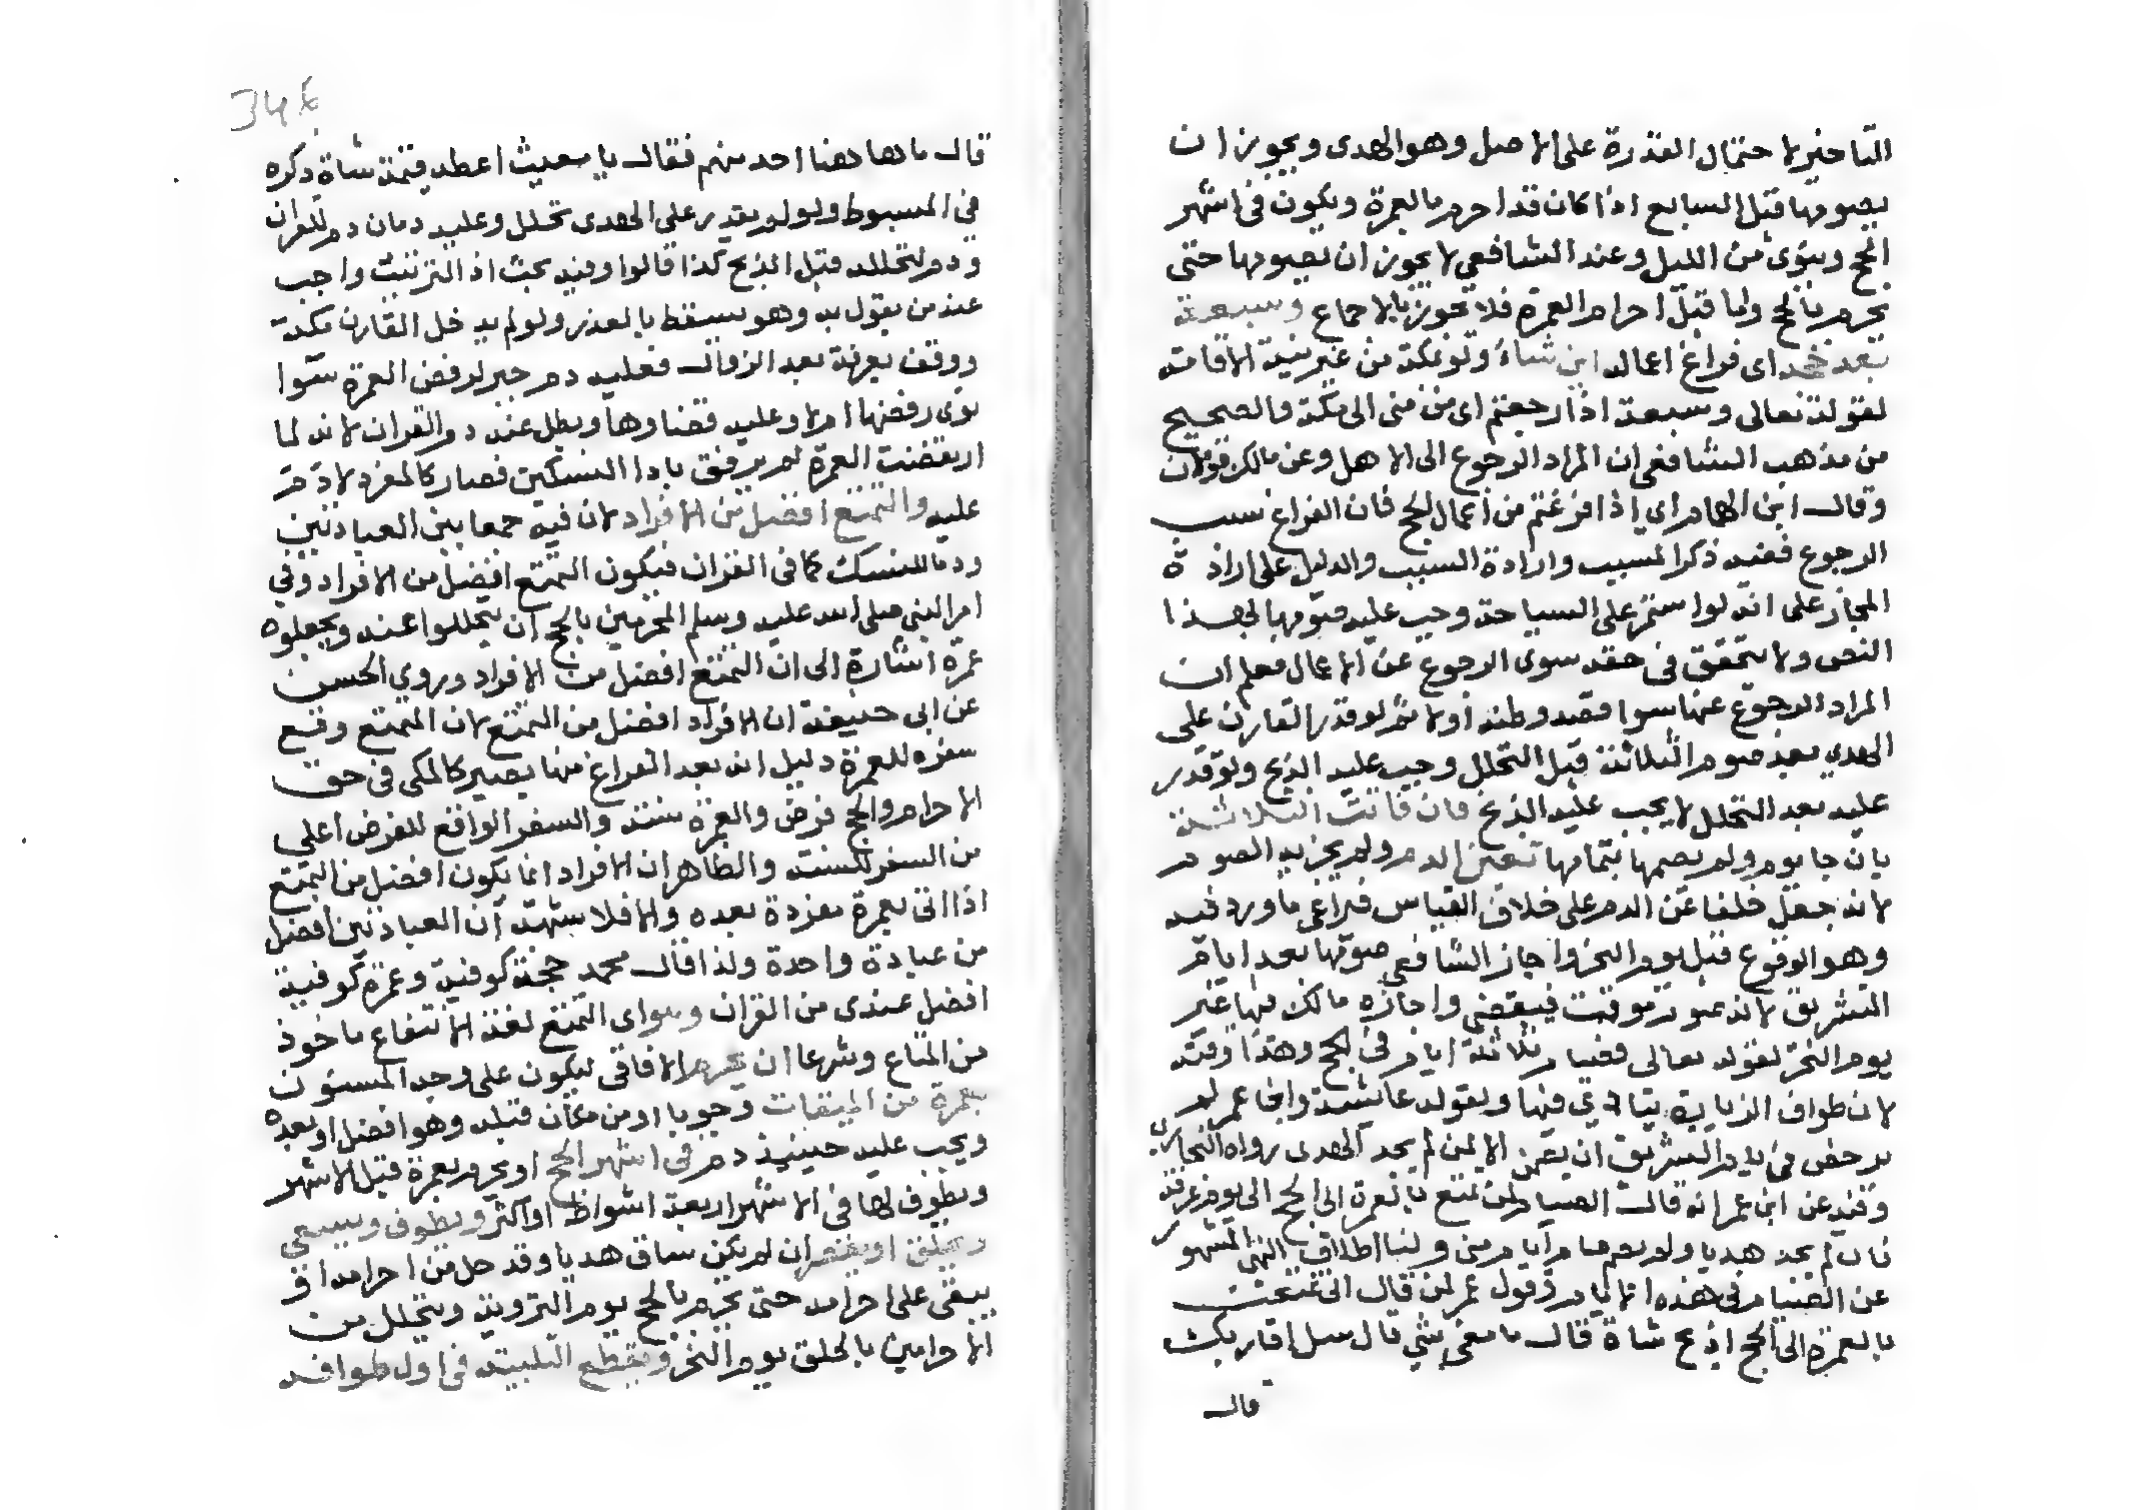 التاخير لاحتمال القدرة على الاصل وهو الهدى ويجوز ان
يصومها قبل السابع اذا كان قد احرم بالعمرة ويكون فى اشهر
الحج وينوى من الليل وعند الشافعي لا يجوز ان يصومها حتى
يحرم بالحج واما قبل احرام العمرة فلا تجوز بالاجماع وسبعة
بعد حجه اى فراغ اعماله اين شاء ولو بمكة من غير نية الاقامة
لقوله تعالى وسبعة اذا رجعتم اى من منى الى مكة والصحيح
من مذهب الشافعى ان المراد الرجوع الى الاهل وعن مالك قولان
وقال ابن الهمام اي اذا فرغتم من اعمال الحج فان الفراغ سبب
الرجوع ففيه ذكر المسبب وارادة السبب والدليل على ارادة
المجاز علما انه لو استمر على السياحة وجب عليه صومها بهذا
النص ولا يتحقق فى حقه سوى الرجوع عن الاعمال فعلم ان
المراد الرجوع عنها سوا قصد وطنه اولا ثم لو قدر القارن على
الهدي بعد صوم الثلاثة قبل التحلل وجب عليه الذبح ولو قدر
عليه بعد التحلل لا يجب عليه الذبح فان فاتت الثلاثة
بان جا يوم ولم يصمها بتمامها تعين الدم ولم يجزيه الصوم
لانه جعل خلفا عن الدم على خلاف القياس فيراعى ما ورد فيه
وهو الوقوع قبل يوم النحر واجاز الشافعى صومها بعد ايام
التشريق لانه صوم موقت فيقضى واجازه مالك فيها غير
يوم النحر لقوله تعالى فصيام ثلاثة ايام فى الحج وهذا وقته
لان طواف الزيارة يتادي فيها ولقول عائشة وابن عمر لم
يرخص في ايام التشريق ان يصمن الا لمن لم يجد الهدى رواه البخارى
وفيه عن ابن عمر انه قال الصيام لمن تمتع بالعمرة الى الحج الى يوم عرفة
فان لم يجد هديا ولم يصم صام ايام منى ولنا اطلاق النهى المشهور
عن الصيام فى هذه الايام وقول عمر لمن قال انى تمتعت
بالعمرة الى الحج اذبح شاة قال ما معى شي قال سل اقاربك
قال
34
قال ما هاهنا احد منهم فقال يا مغيث اعطه قيمة شاة ذكره
فى المبسوط ولو لم يقدر على الهدى تحلل وعليه دمان دم للقران
ودم لتحلله قبل الذبح كذا قالوا وفيه بحث اذ الترتيب واجب
عند من يقول به وهو يسقط بالعذر ولو لم يدخل القارن مكة
ووقف بعرفة بعد الزوال فعليه دم جبر لرفض العمرة سوا
نوى رفضها ام لا وعليه قضاوها وبطل عنه دم القران لانه لما
ارتفضت العمرة لم يرفق بادا النسكين فصار كالمفرد لا دم
عليه والتمتع افضل من الافراد لان فيه جمعا بين العبادتين
ودما للنسك كما فى القران فيكون التمتع افضل من الافراد وفي
امر النبى صلى الله عليه وسلم المحرمين بالحج ان يتحللوا عنه ويجعلوه
عمرة اشارة الى ان التمتع افضل من الافراد وروي الحسن
عن ابى حنيفة ان الافراد افضل من التمتع لان المتمتع وقع
سفره للعمرة دليل انه بعد الفراغ منها يصير كالمكى فى حق
الاحرام والحج فرض والعمرة سنة والسفر الواقع للفرض اعلى
من السفر للسنة والظاهر ان الافراد انما يكون افضل من التمتع
اذا اتى بعمرة مفردة بعده والا فلا شبهة ان العبادتين افضل
من عبادة واحدة ولذا قال محمد حجة كوفية وعمرة كوفية
افضل عندى من القران وهو اى التمتع لغة الانتفاع ماخوذ
من المتاع وشرعا ان يحرم الافاقى ليكون على وجه المسنون
بعمرة من الميقات وجوبا او من مكان قبله وهو افضل او بعده
ويجب عليه حينيذ دم فى اشهر الحج او يحرم بعمرة قبل الاشهر
ويطوف لها فى الاشهر اربعة اشواط او اكثر ويطوف ويسعى
ويحلق او يقصر ان لم يكن ساق هديا وقد حل من احرامه او
يبقى على احرامه حتى يحرم بالحج يوم التروية ويتحلل من
الاحرامين بالحلق يوم النحر ويقطع التلبية فى اول طوافه